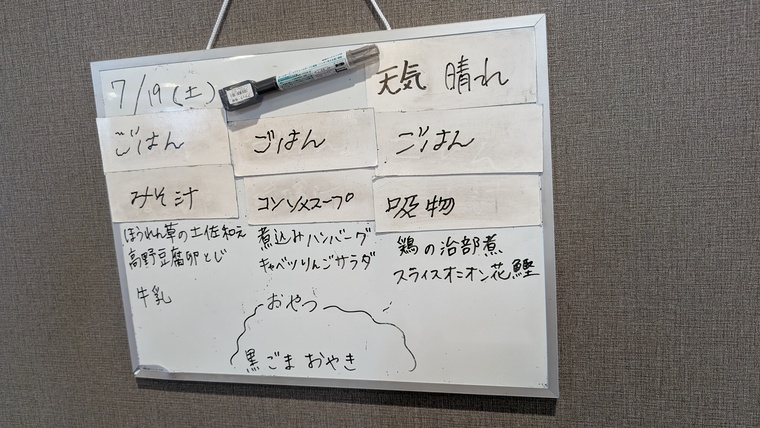 7/19(土)
天気 晴れ
ごはん
みそ汁
ほうれん草の土佐和え
高野豆腐卵とじ
牛乳
ごはん
コンソメスープ
煮込みハンバーグ
キャベツりんごサラダ
ごはん
吸物
鶏の治部煮
スライスオニオン花鰹
おやつ
黒ごまおやき